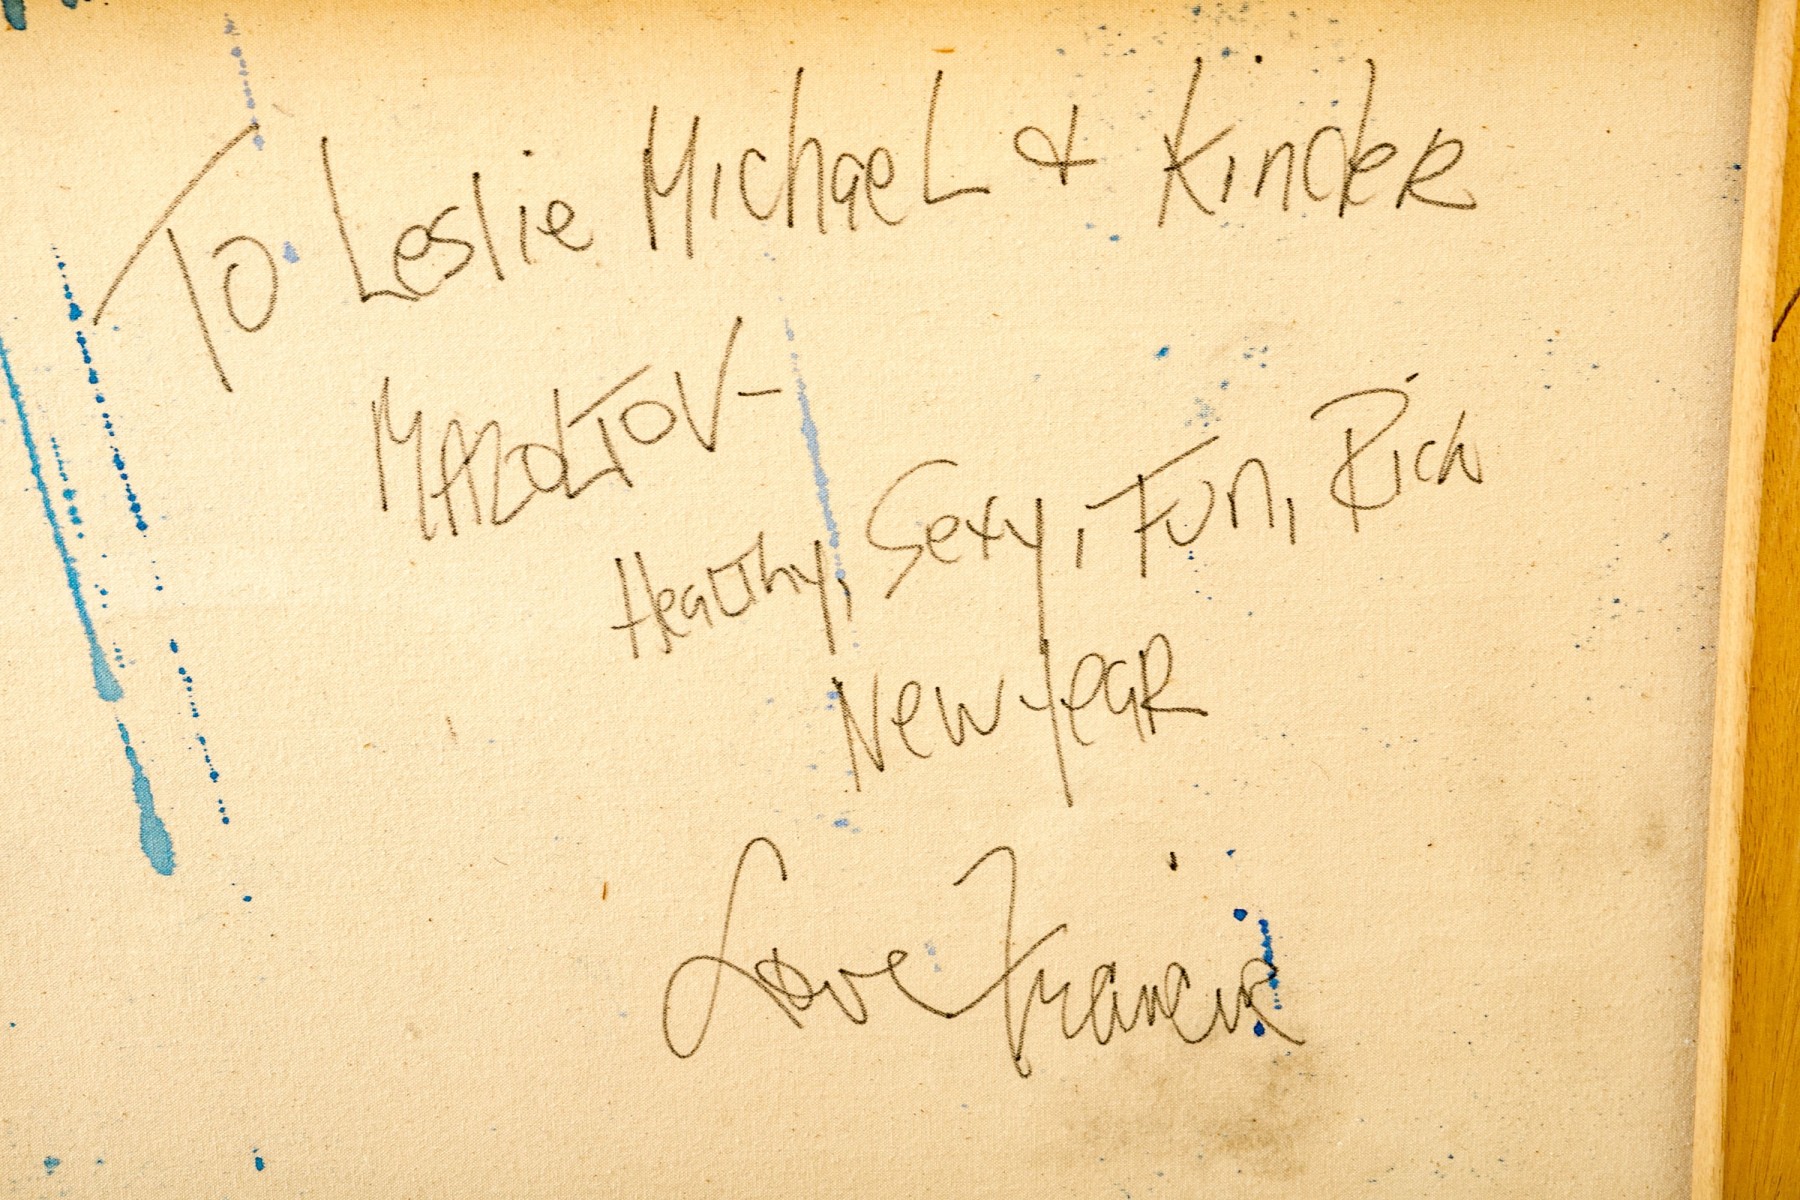 To Leslie Michael & Kinder
MAZOLTOV-
Healthy, Sexy, Fun, Rich
New Year
Love Francis